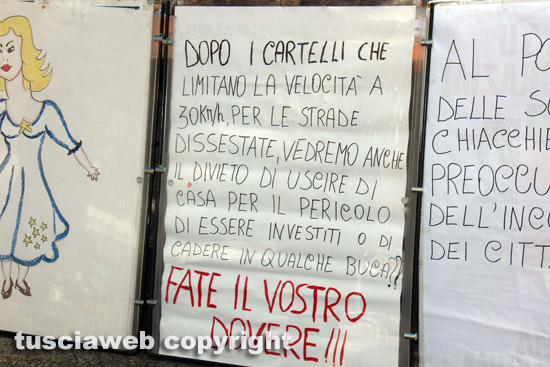 DOPO I CARTELLI CHE
LIMITANO LA VELOCITÀ A
30Km/h, PER LE STRADE
DISSESTATE, VEDREMO ANCHE
IL DIVIETO DI USCIRE DI
CASA PER IL PERICOLO
DI ESSERE INVESTITI O DI
CADERE IN QUALCHE BUCA??
FATE IL VOSTRO
DOVERE!!!
AL
DELLE
CHIACCHIE
PREOCCU
DELL'INC
DEI CITT
tusciaweb copyright